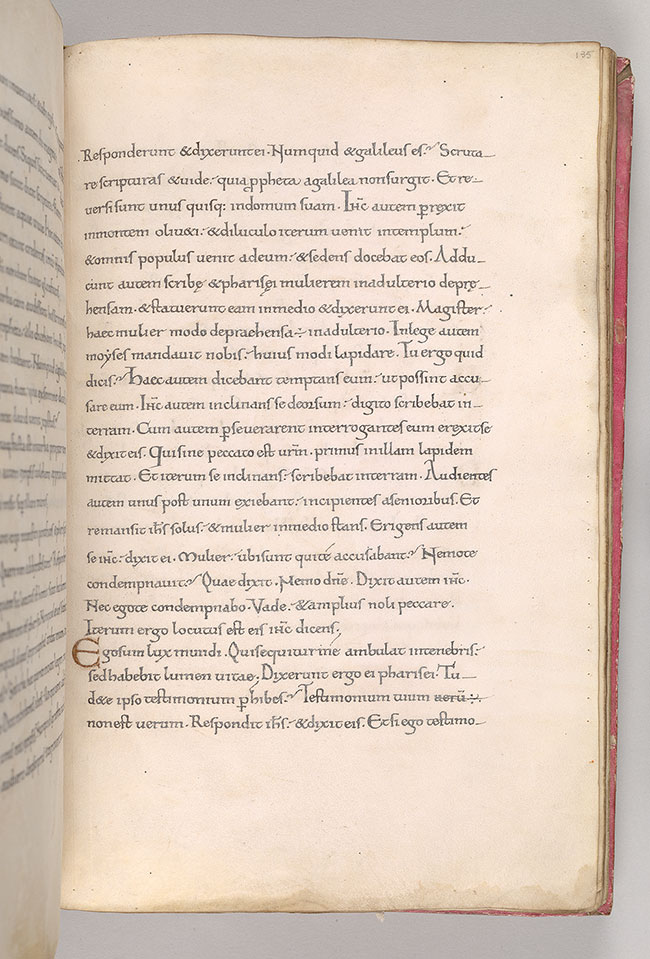 195
Responderunt &dixerunt ei. Numquid &galileus es? Scruta-
re scripturas &uide. quia ꝓpheta agalilea nonsurgit. Et re-
uersi sunt unus quisq: indomum suam. Ihc autem ꝑrexit
inmontem oliu&i. &diluculo iterum uenit intemplum.
&omnis populus uenit adeum. &sedens docebat eos. Addu-
cunt autem scribę &pharisęi mulierem inadulterio deprę-
hensam. &statuerunt eam inmedio &dixerunt ei. Magister.
haec mulier modo depraehensa ÷ inadulterio. Inlege autem
moyses mandauit nobis. huius modi lapidare. Tu ergo quid
dicis? Haec autem dicebant temptans eum. ut possint accu-
sare eum. Ihc autem inclinans se deorsum. digito scribebat in-
terram. Cum autem ꝑseuerarent interrogantes eum erexit se
&dixit eis. Qui sine peccato est urm. primus inillam lapidem
mittat. Et iterum se inclinans. scribebat interram. Audientes
autem unus post unum exiebant. incipientes asenioribus. Et
remansit ihs solus. &mulier inmedio stans. Erigens autem
se ihc. dixit ei. Mulier. ubi sunt qui te accusabant? Nemo te
condempnauit? Quae dixit. Nemo dne. Dixit autem ihc.
Nec ego te condempnabo. Vade. &amplius noli peccare.
Iterum ergo locutus est eis ihc dicens.
Ego sum lux mundi. Qui sequitur me ambulat intenebris.
sed habebit lumen uitae. Dixerunt ergo ei pharisei. Tu-
de te ipso testimonium ꝑhibes? Testimonium tuum uerū ÷.
non est uerum. Respondit ihs. &dixit eis. Et si ego testimo-